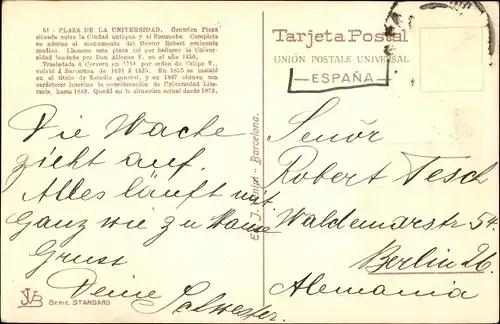 51 - PLAZA DE LA UNIVERSIDAD. Céntrica Plaza
situada entre la Ciudad antigua y el Ensanche. Completa
su adorno el monumento del Doctor Robert eminente
médico. Llámase esta plaza así por hallarse la Univer-
sidad fundada por Don Alfonso V. en el año 1450.
Trasladada á Cervera en 1714 por orden de Felipe V.,
volvió á Barcelona de 1821 á 1825. En 1835 se instaló
en el título de Estudio general, y en 1837 obtuvo con
carácter interino la consideración de Universidad Lite-
raria, hasta 1842. Quedó en la situación actual desde 1873.
Die Wache
zieht auf.
Alles läuft mit
Ganz wie zu Hause
Gruss
Deine
Serie STANDARD
J. Barcelona.
Tarjeta Postal
UNIÓN POSTALE UNIVERSAL
ESPAÑA
Señor
Robert Tesch
Waldemarstr 54.
Berlin 26
Alemania